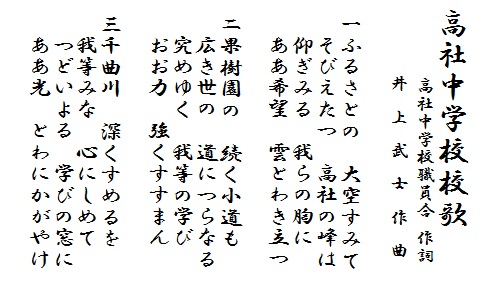 高社中学校校歌
高社中学校職員会 作詞
井上武士 作曲
一 ふるさとの 大空すみて
そびえたつ 高社の峰は
仰ぎみる 我らの胸に
ああ希望 雲とわき立つ
二 果樹園の 続く小道も
広き世の 道につらなる
究めゆく 我等の学び
おお力 強くすすまん
三 千曲川 深くすめるを
我等みな 心にしめて
つどいよる 学びの窓に
ああ光 とわにかがやけ